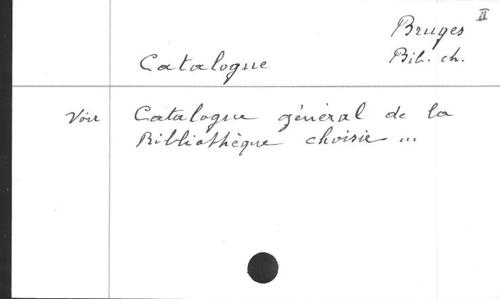 II
Bruges
Bib. ch.
Catalogue
Voir Catalogue général de la
Bibliothèque choisie ...